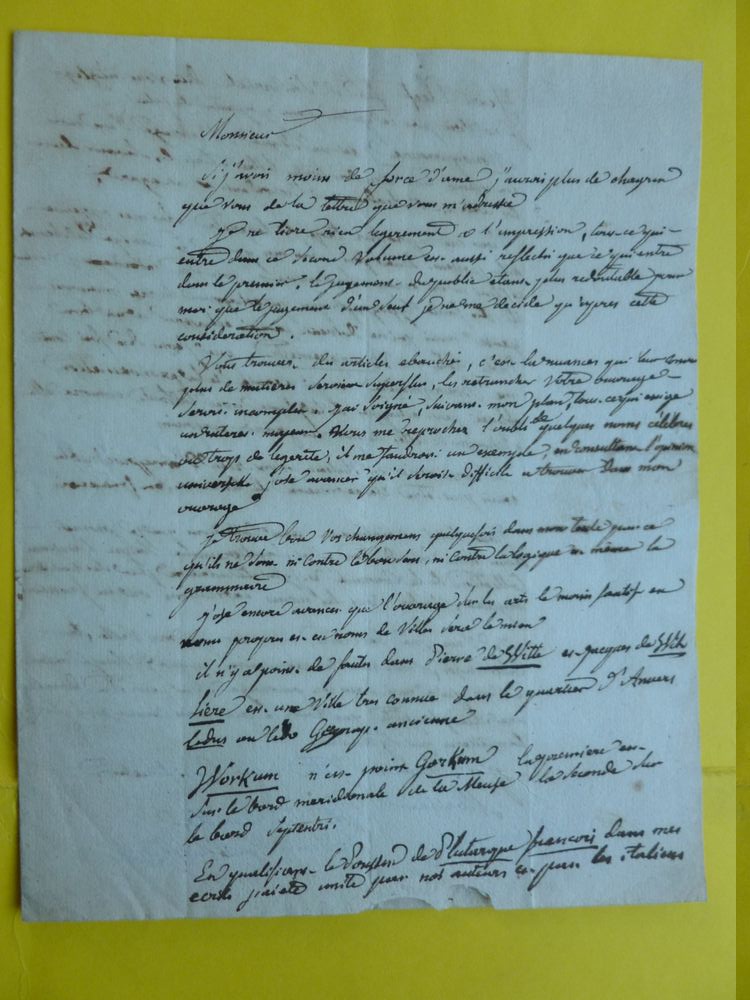 Monsieur
Si j'avois moins de force d'ame j'aurois plus de chagrin
que vous de la lettre que vous m'adressé
je ne livre rien legerement a l'impression, tous ce qui
entre dans ce second volume est aussi reflechi que ce qui entre
dans le premier. le jugement du public etant plus redoutable pour
moi que le jugement d'un seul je ne me decide qu'apres cette
consideration.
Vous trouvez des articles ebauchés, c'est la nuances qui
plus de matières seroient superflus, les retrancher Votre ouvrage
seroit incomplet. j'ai soigné, suivant mon plan, tous ce qui exige
un interet majeur. Vous me reprochez l'oubli de quelques noms célèbres
ou trop de legereté, il me faudroit un exemple, en consultant l'opinion
universelle j'ose avancer qu'il seroit difficile a trouver dans mon
ouvrage
je trouve bon vos changemens quelquefois dans mon texte pourvu
qu'ils ne sont ni contre le bon sens, ni contre la logique et même la
grammaire
j'ose encore avancer que l'ouvrage sur les arts le moins fautif en
noms propres et en noms de Villes sera le mien
il n'y a point de fautes dans Pierre de Witt et jacques de Witt
Liere est une Ville tres connue dans le quartier d'Anvers
Ledus ou Ledo Geograp. ancienne
Workum n'est point Gorkum la premiere est
sur le bord meridionale de la Meuse la seconde sur
le bord Septentri.
En qualifiant le Poussin de Plutarque françois dans mes
ecrits j'ai eté imité par nos auteurs et par les italiens